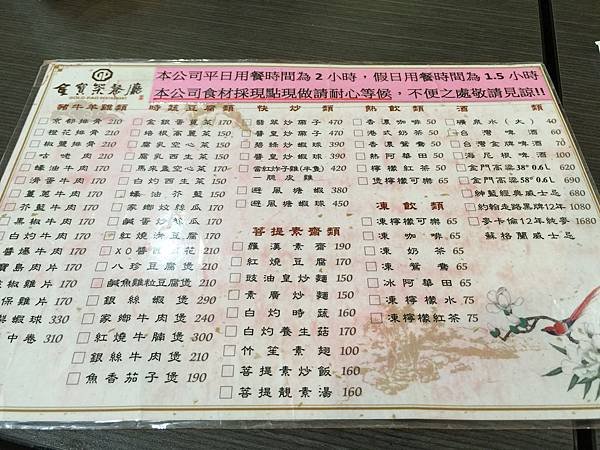 金寶茶餐廳
本公司平日用餐時間為 2 小時，假日用餐時間為 1.5 小時
本公司食材採現點現做請耐心等候，不便之處敬請見諒!!
豬牛羊雞類
京都排骨 210
橙花排骨 210
椒鹽排骨 210
咕咾肉 210
蠔油牛肉 170
滑蛋牛肉 170
薑蔥牛肉 170
芥藍牛肉 170
黑椒牛肉 170
白灼牛肉 170
醬爆牛肉 170
寶島肉片 170
椒雞片 170
保雞片 170
蝦球 330
中卷 310
時蔬豆腐類
金銀蛋莧菜 150
培根高麗菜 150
腐乳空心菜 150
腐乳西生菜 150
馬來盞空心菜 170
白灼西生菜 150
家鄉炆絲瓜 170
鹹蛋炒絲瓜 170
紅燒滑豆腐 170
XO醬 花 210
八珍豆腐煲 210
鹹魚雞粒豆腐煲 210
銀絲蝦煲 290
家鄉牛肉煲 240
紅燒牛腩煲 300
銀絲牛肉煲 210
魚香茄子煲 190
快炒類
翡翠炒蝦子 470
醬皇炒蝦子 470
碧綠炒蝦球 390
醬皇炒蝦球 390
當紅炸子雞(半隻) 420
脆皮雞
避風塘蝦 380
避風塘蝦球 390
菩提素齋類
羅漢素齋 190
紅燒豆腐 170
豉油皇炒麵 150
素廣炒麵 160
白灼時蔬 160
白灼養生菇 170
竹笙素翅 100
菩提素炒飯 160
菩提靚素湯 160
熱飲類
香濃咖啡 50
港式奶茶 50
香濃鴛鴦 50
熱阿華田 50
檸檬紅茶 50
煲檸檬可樂 65
凍飲類
凍檸檬可樂 65
凍咖啡 65
凍奶茶 65
凍鴛鴦 65
冰阿華田 65
凍檸檬水 75
凍檸檬紅茶 75
酒類
礦泉水(大) 40
台灣啤酒 60
台灣金牌啤酒 70
海尼根啤酒 100
金門高粱 38° 0.6L 620
金門高粱 58° 0.6L 690
紳藍經典威士忌 680
約翰走路黑牌12年 1080
麥卡倫12年純麥 1680
蘇格蘭威士忌